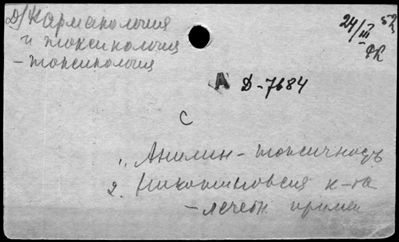 Д/Фармакология
и токсикология
- токсикология
24/III 52
А Д-7684
С
1. Анилин - токсичность
2. Никотиновая к-та
- лечебн. прим.